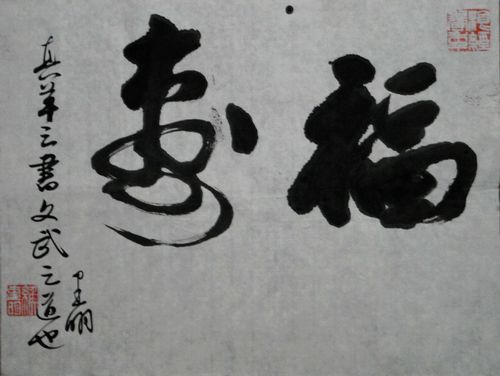 福寿
真草三書文武之道也
明